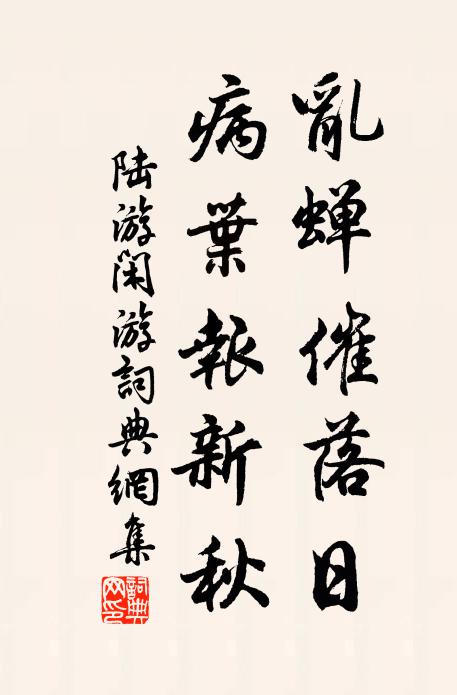 亂蝉催落日
病葉報新秋
陆游闲游詞典網集
詞典网印